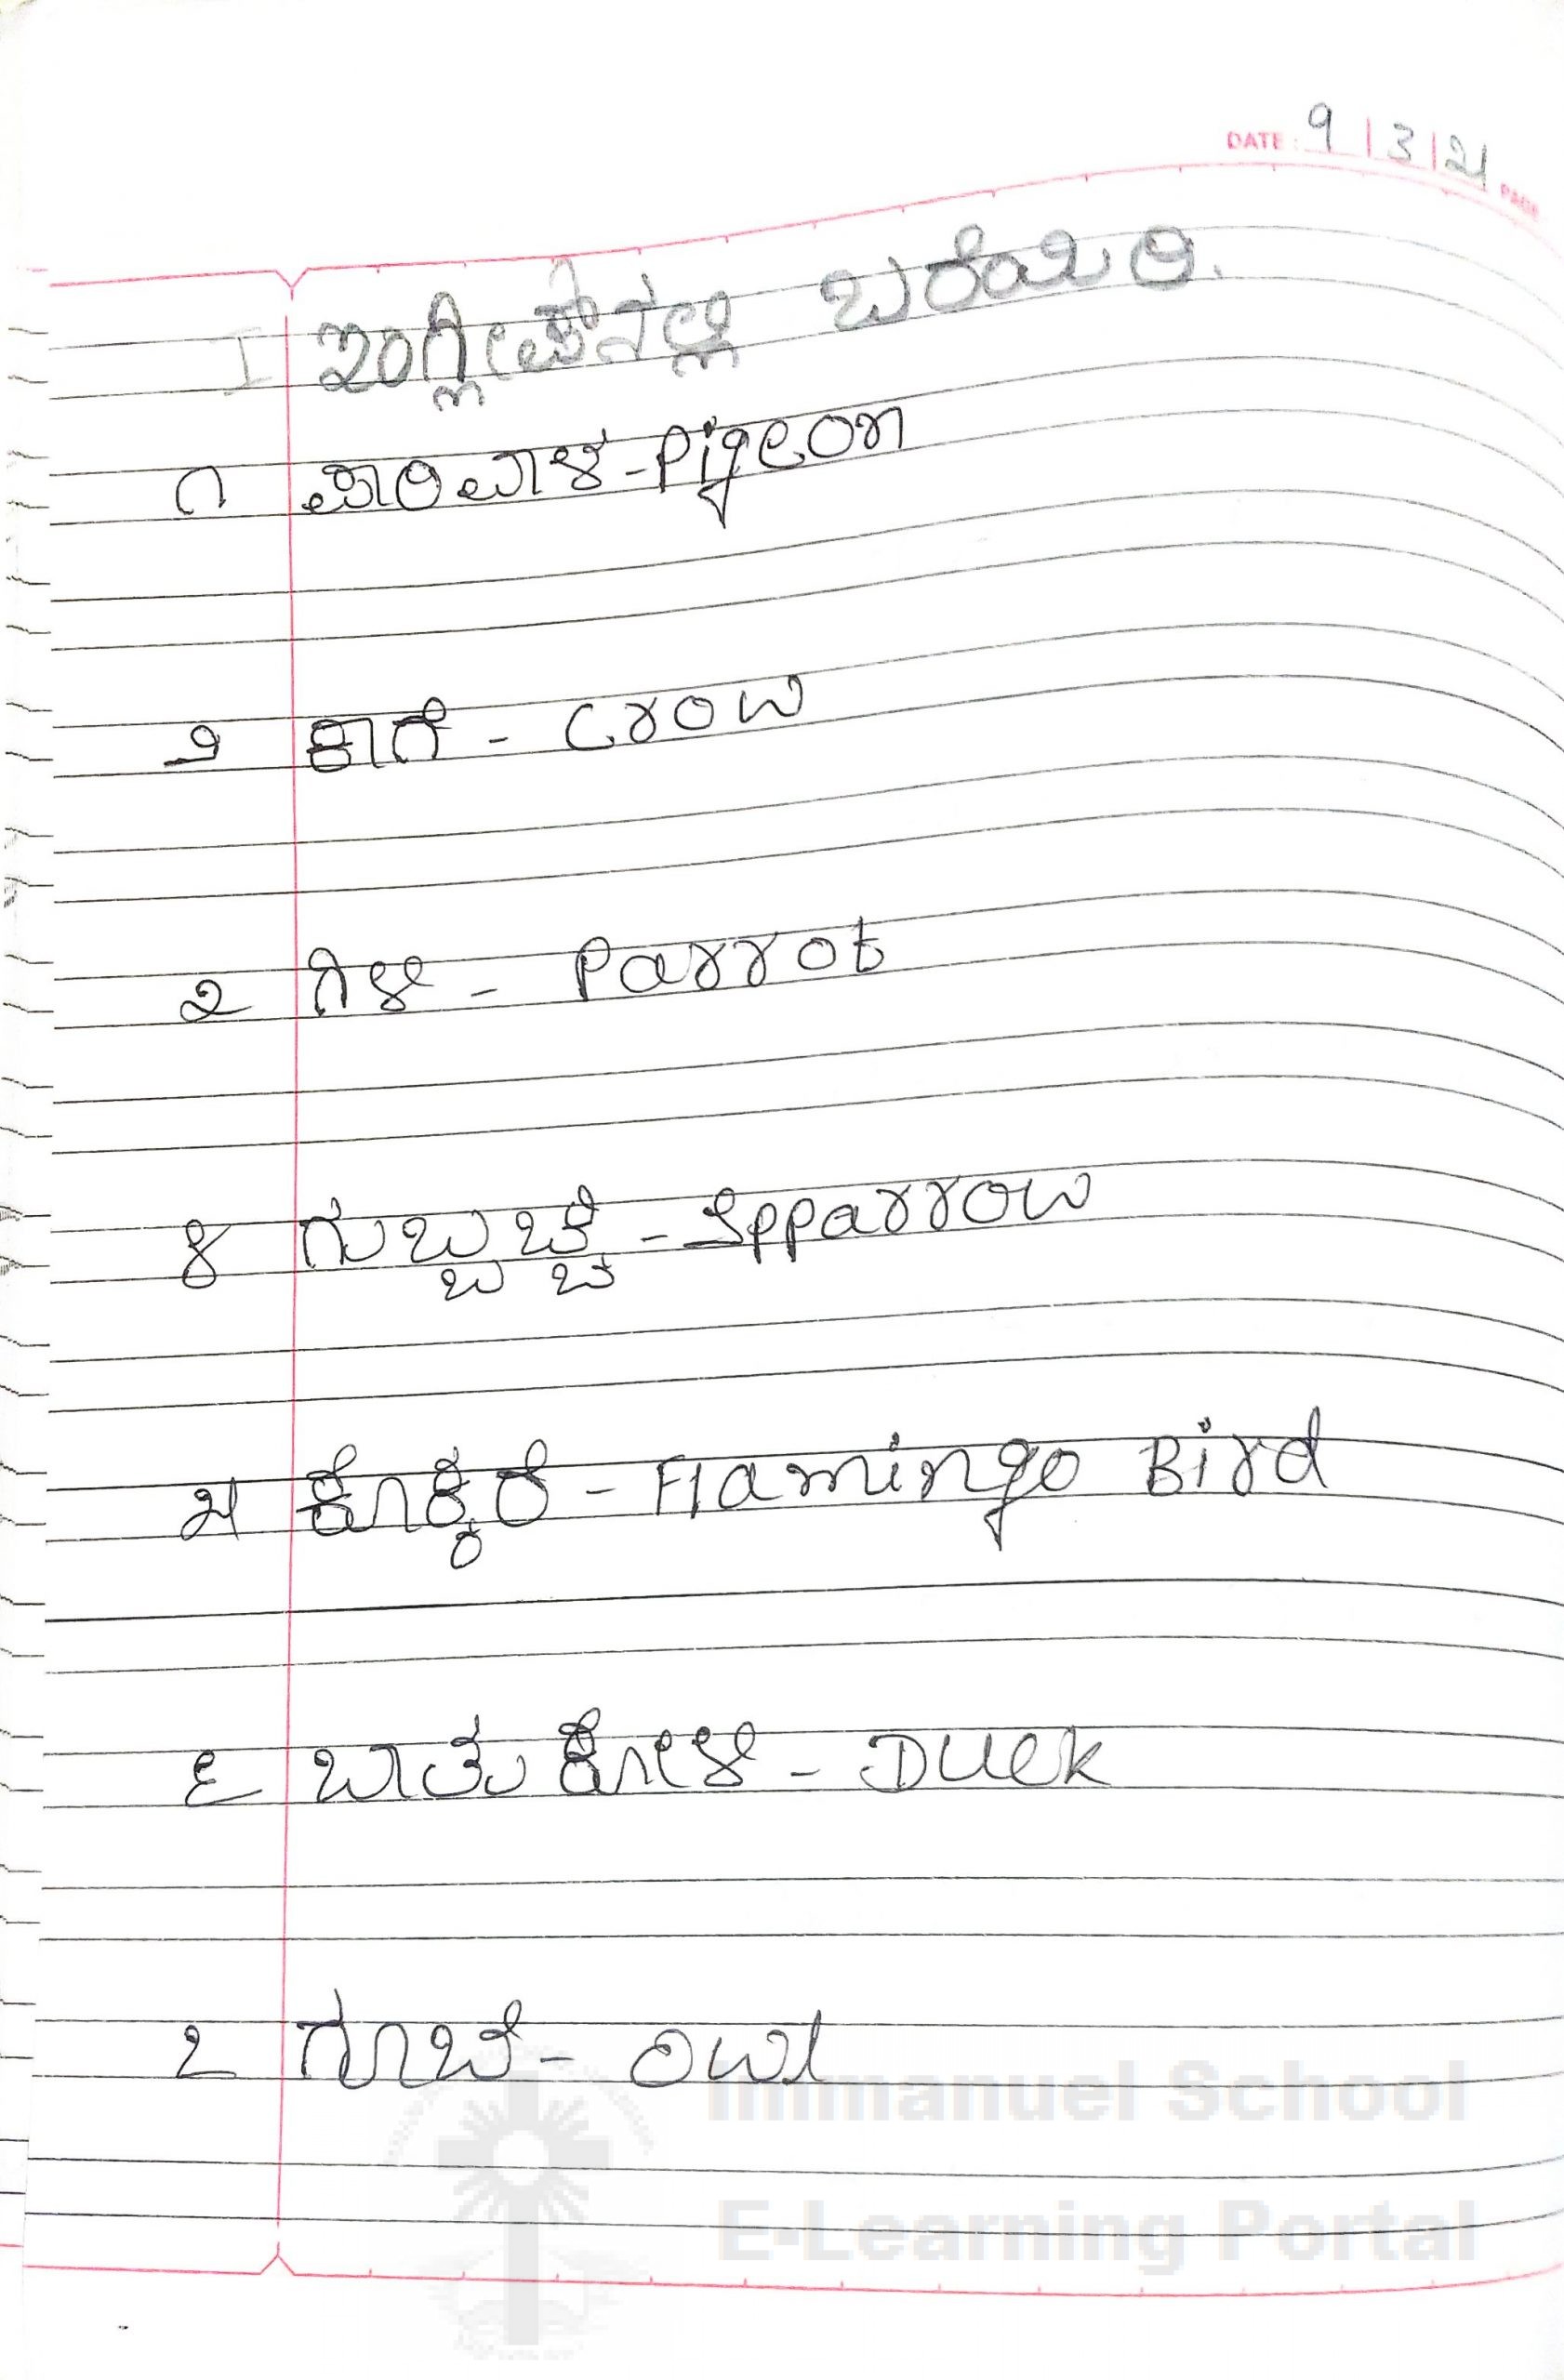 DATE: 9/3/21 PAGE
I ಇಂಗ್ಲೀಷ್‌ನಲ್ಲಿ ಬರೆಯಿರಿ.
೧ ಪಾರಿವಾಳ - Pigeon
೨ ಕಾಗೆ - Crow
೩ ಗಿಳಿ - Parrot
೪ ಗುಬ್ಬಚ್ಚಿ - Spparrow
೫ ಕೊಕ್ಕರೆ - Flamingo Bird
೬ ಬಾತುಕೋಳಿ - Duck
೭ ಗೂಬೆ - Owl
Immanuel School
E-Learning Portal